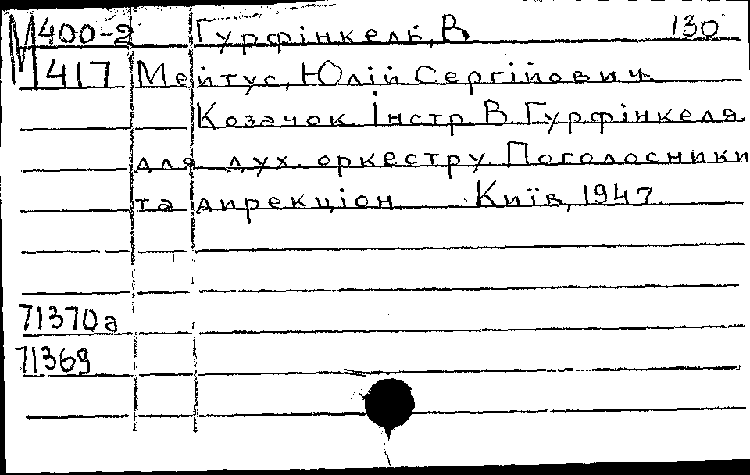 М 400-2 Гурфінкель, В. 130
417 Мейтус, Юлій Сергійович.
Козачок. Інстр. В. Гурфінкеля
для дух. оркестру. Поголосники
та дирекціон. Київ, 1947.
71370а
71369